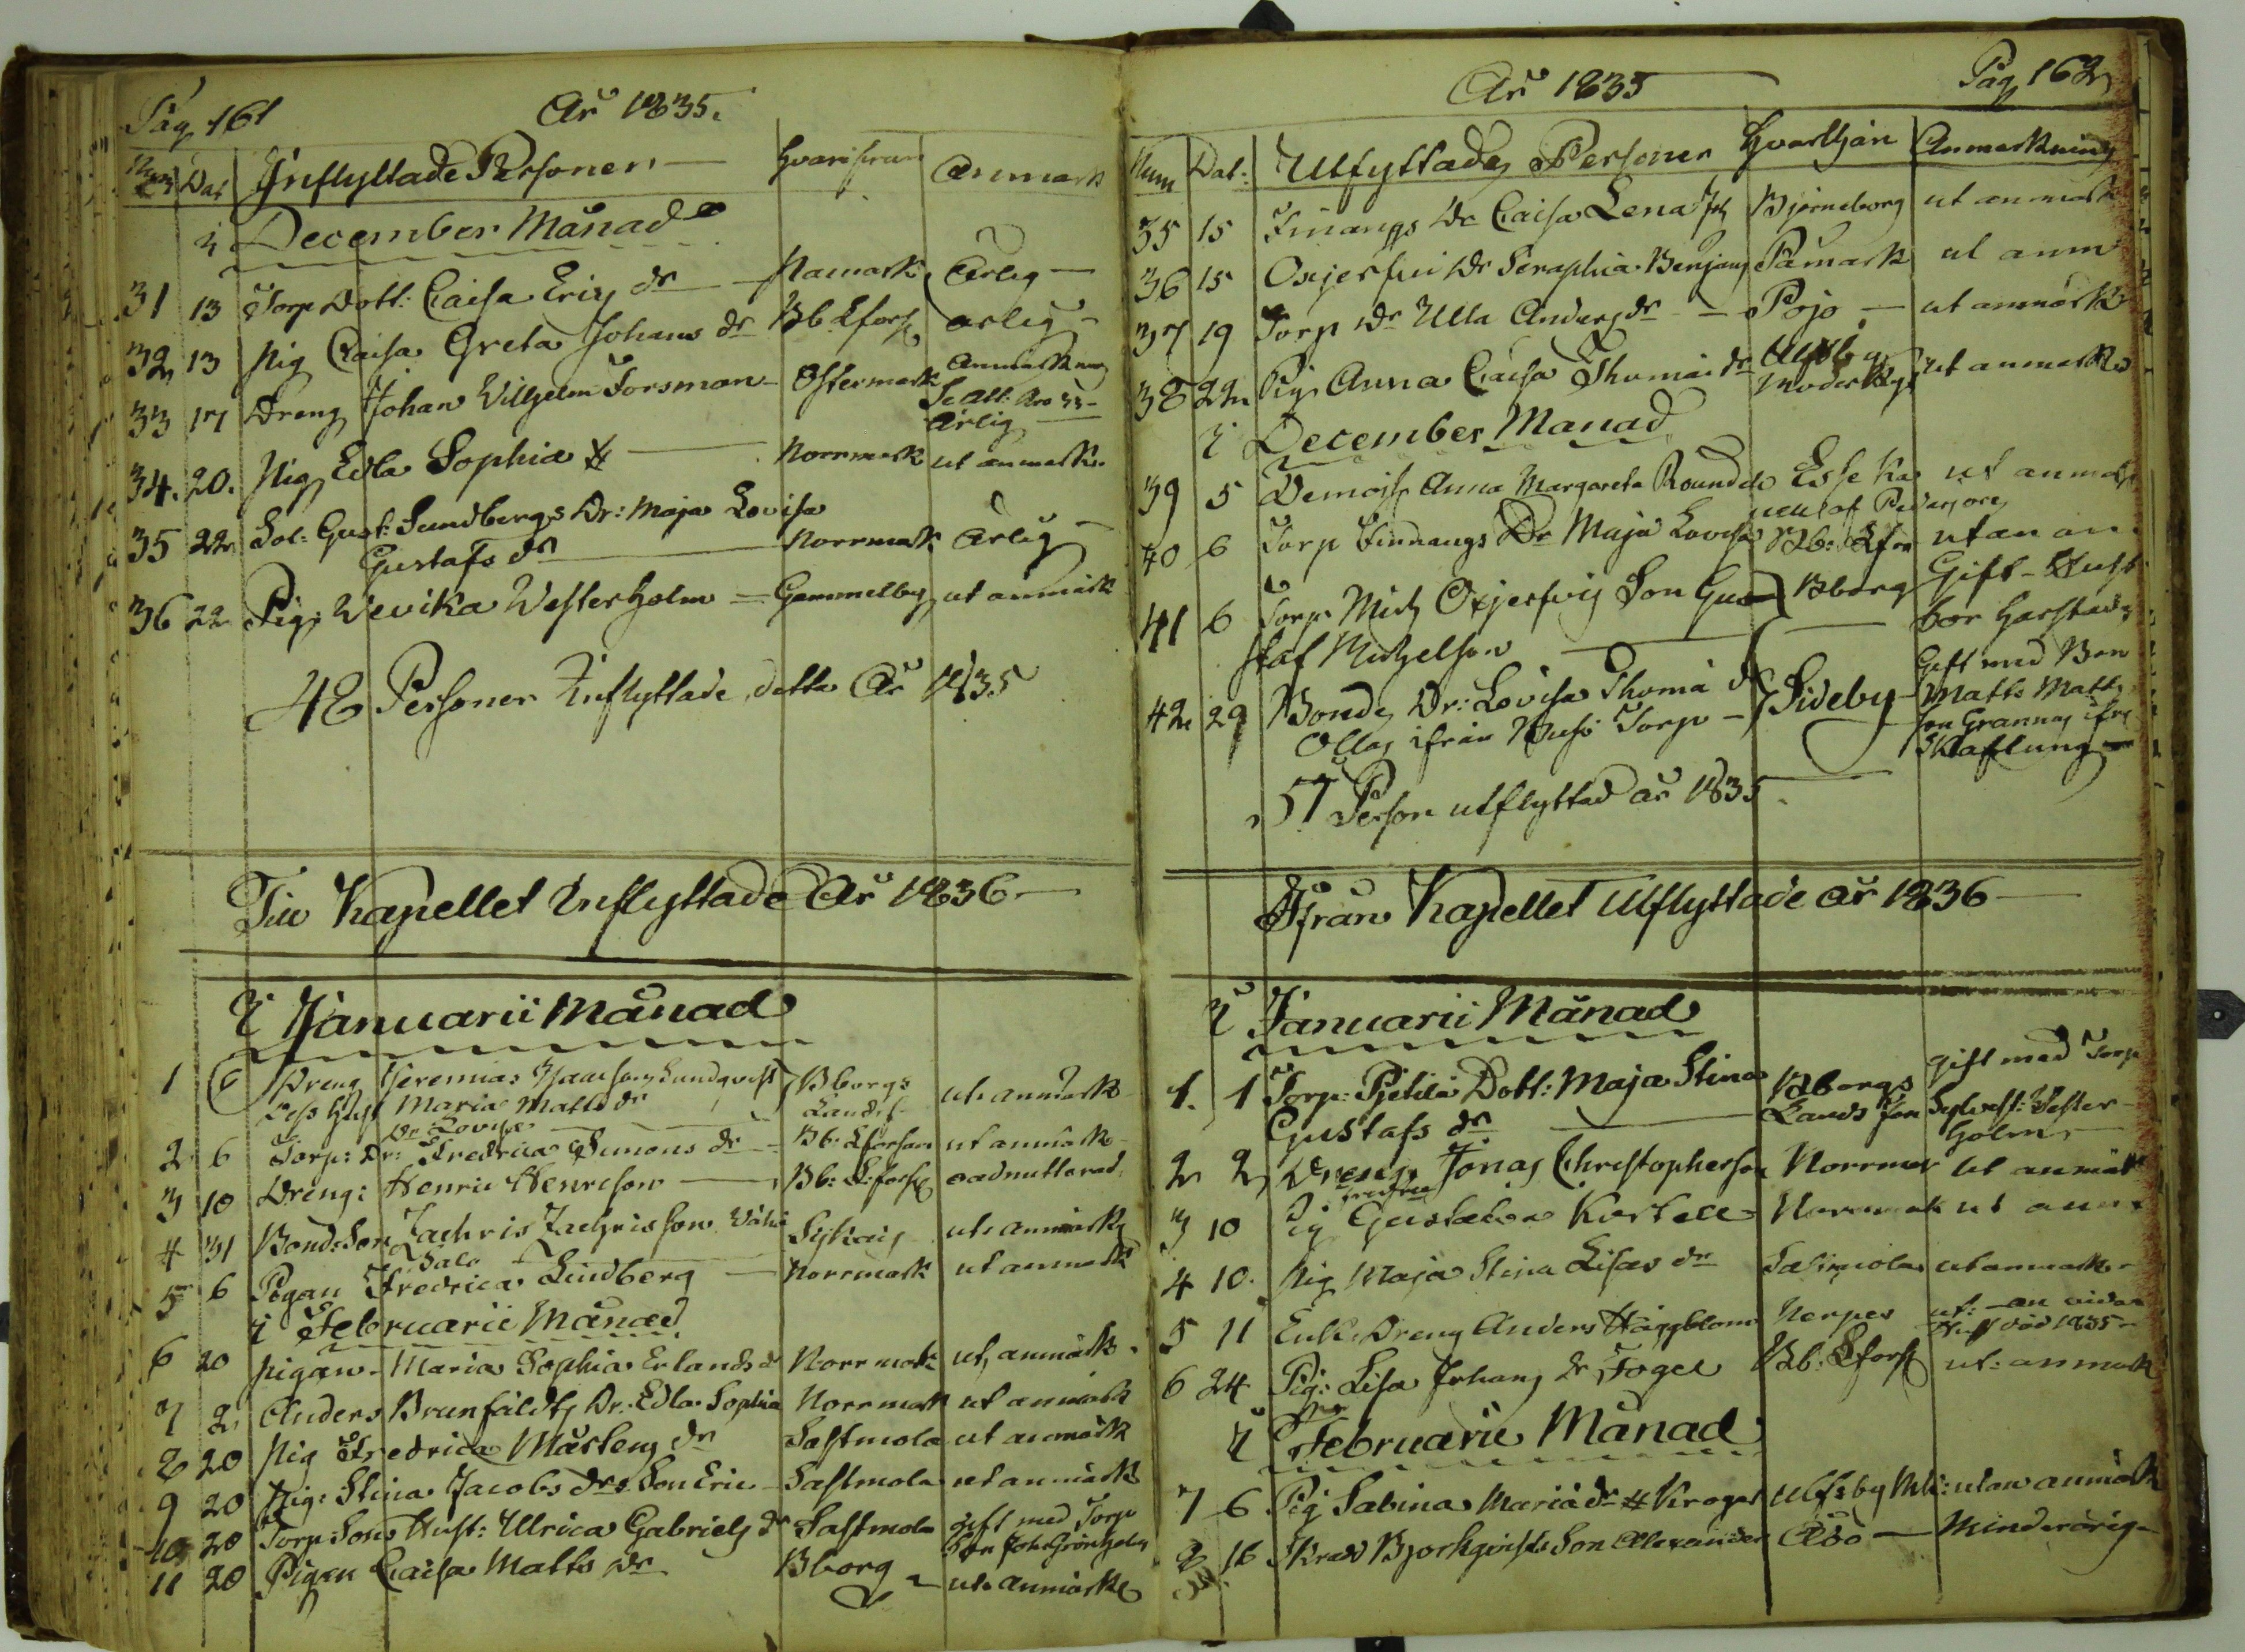 Pag 161
År 1835.
Num Dat Inflyttade Personer Hvarifrån Anmärk
i December Månad
31 13 Torp Dott: Caisa Erics dr Påmark Ärlig
32 13 Pig Caisa Greta Johans dr Bb Lförs ärlig
33 17 Dreng Johan Vilhelm Forsman Östermark Anmärkning
Se Att: No 33
Ärlig
34. 20. Pig Edla Sophia Norrmark ut anmärk.
35 22 Sol: Gust: Sundbergs Dr: Maja Lovisa
Gustafs dr Norrmark Ärlig
36 22 Pig: Wevika Westerholm Gammelby ut anmärk
48 Personer Inflyttade detta År 1835
Till Kapellet Inflyttade År 1836
I Januarii Månad
1 6 Dreng Jeremias Isacsson Lundqvist Bborgs ut. anmärk
Dess Hust Maria Matts dr Landsf
Dr Lovisa
2 6 Torp: Dr: Fredrica Simons dr Bb: Lförsam ut anmärk
3 10 Dreng: Henric Henricson Bb: L:förs oadmitterad
4 31 Bond:Son Zachris Zachrisson Sykais ut. anmärk
Salo
5 6 Pigan Fredrica Lindberg Norrmark ut anmärk
i Februarii Månad
6 20 Pigan Maria Sophia Erlands d Norrmark ut, anmärk.
7 2 Anders Brunfäldts Dr. Edla Sophia Norrmark ut anmärk
8 20 Pig Fredrica Mårtens dr Sastmola ut anmärk
9 20 Pig: Stina Jacobs drs Son Eric Sastmola ut anmärk
10 20 Torp:Sons Hust: Ulrica Gabriels dr Sastmola gift med Torp
Son Joh: Grönholm
11 20 Pigan Caisa Matts dr Bborg ut. anmärk
År 1835
Pag 162
Num Dat: Utflyttade Personer Hvarthän Anmärkning
35 15 Finangs Dr Caisa Lena Björneborg ut anmärk
36 15 Oxjerfvi Dr Seraphia Benjams Påmark ut anm
37 19 Torp Dr Ulla Anders dr Pojo ut anmärk
38 22 Pig Anna Caisa Thomæ dr Ulfsby
Moderkyr ut anmärk
I December Månad
39 5 Demois Anna Margareta Rounde Esse Ka ut anmärk
pell af Pedersöre
40 6 Torp Finnangs Dr Maja Lovisa Bb: Lför utan an
41 6 Torp Mich Oxjerfvis Son Gu Bborg Gift Hust
staf Michelson bor härstäds
42 29 Bonds Dr: Lovisa Thomæ d Sideby Gift med Bon
Ollas ifrån Torp Matts Matts
son Grannas ifrå
Skaftung
57 Person utflyttad år 1835.
Ifrån Kapellet Utflyttade år 1836
I Januarii Månad
1. 1 Torp: Pjetilä Dott: Maja Stina Bborgs gift med Torp
Gustafs dr Lands för Sylvest: Wester
holm
2 2 Dreng Jonas Christopherson Norrmar ut anmärk
3 10 Pig Gustava Kortell Norrmark ut anm
4 10. Pig Maja Stina Lisas dr Sastmola ut anmärk
5 11 Enk. Dreng Anders Häggblom Nerpes ut: an vidar
Hust död 1835
6 24 Pig: Lisa Johans dr Fogel Bb: Lförs ut: anmärk
I Februarii Månad
7 6 Pig Sabina Mariæ dr Kroger Ulfsby Mk: utan anmärk
8 16 Skrad Bjorkqvists Son Alexander Åbo Minderårig